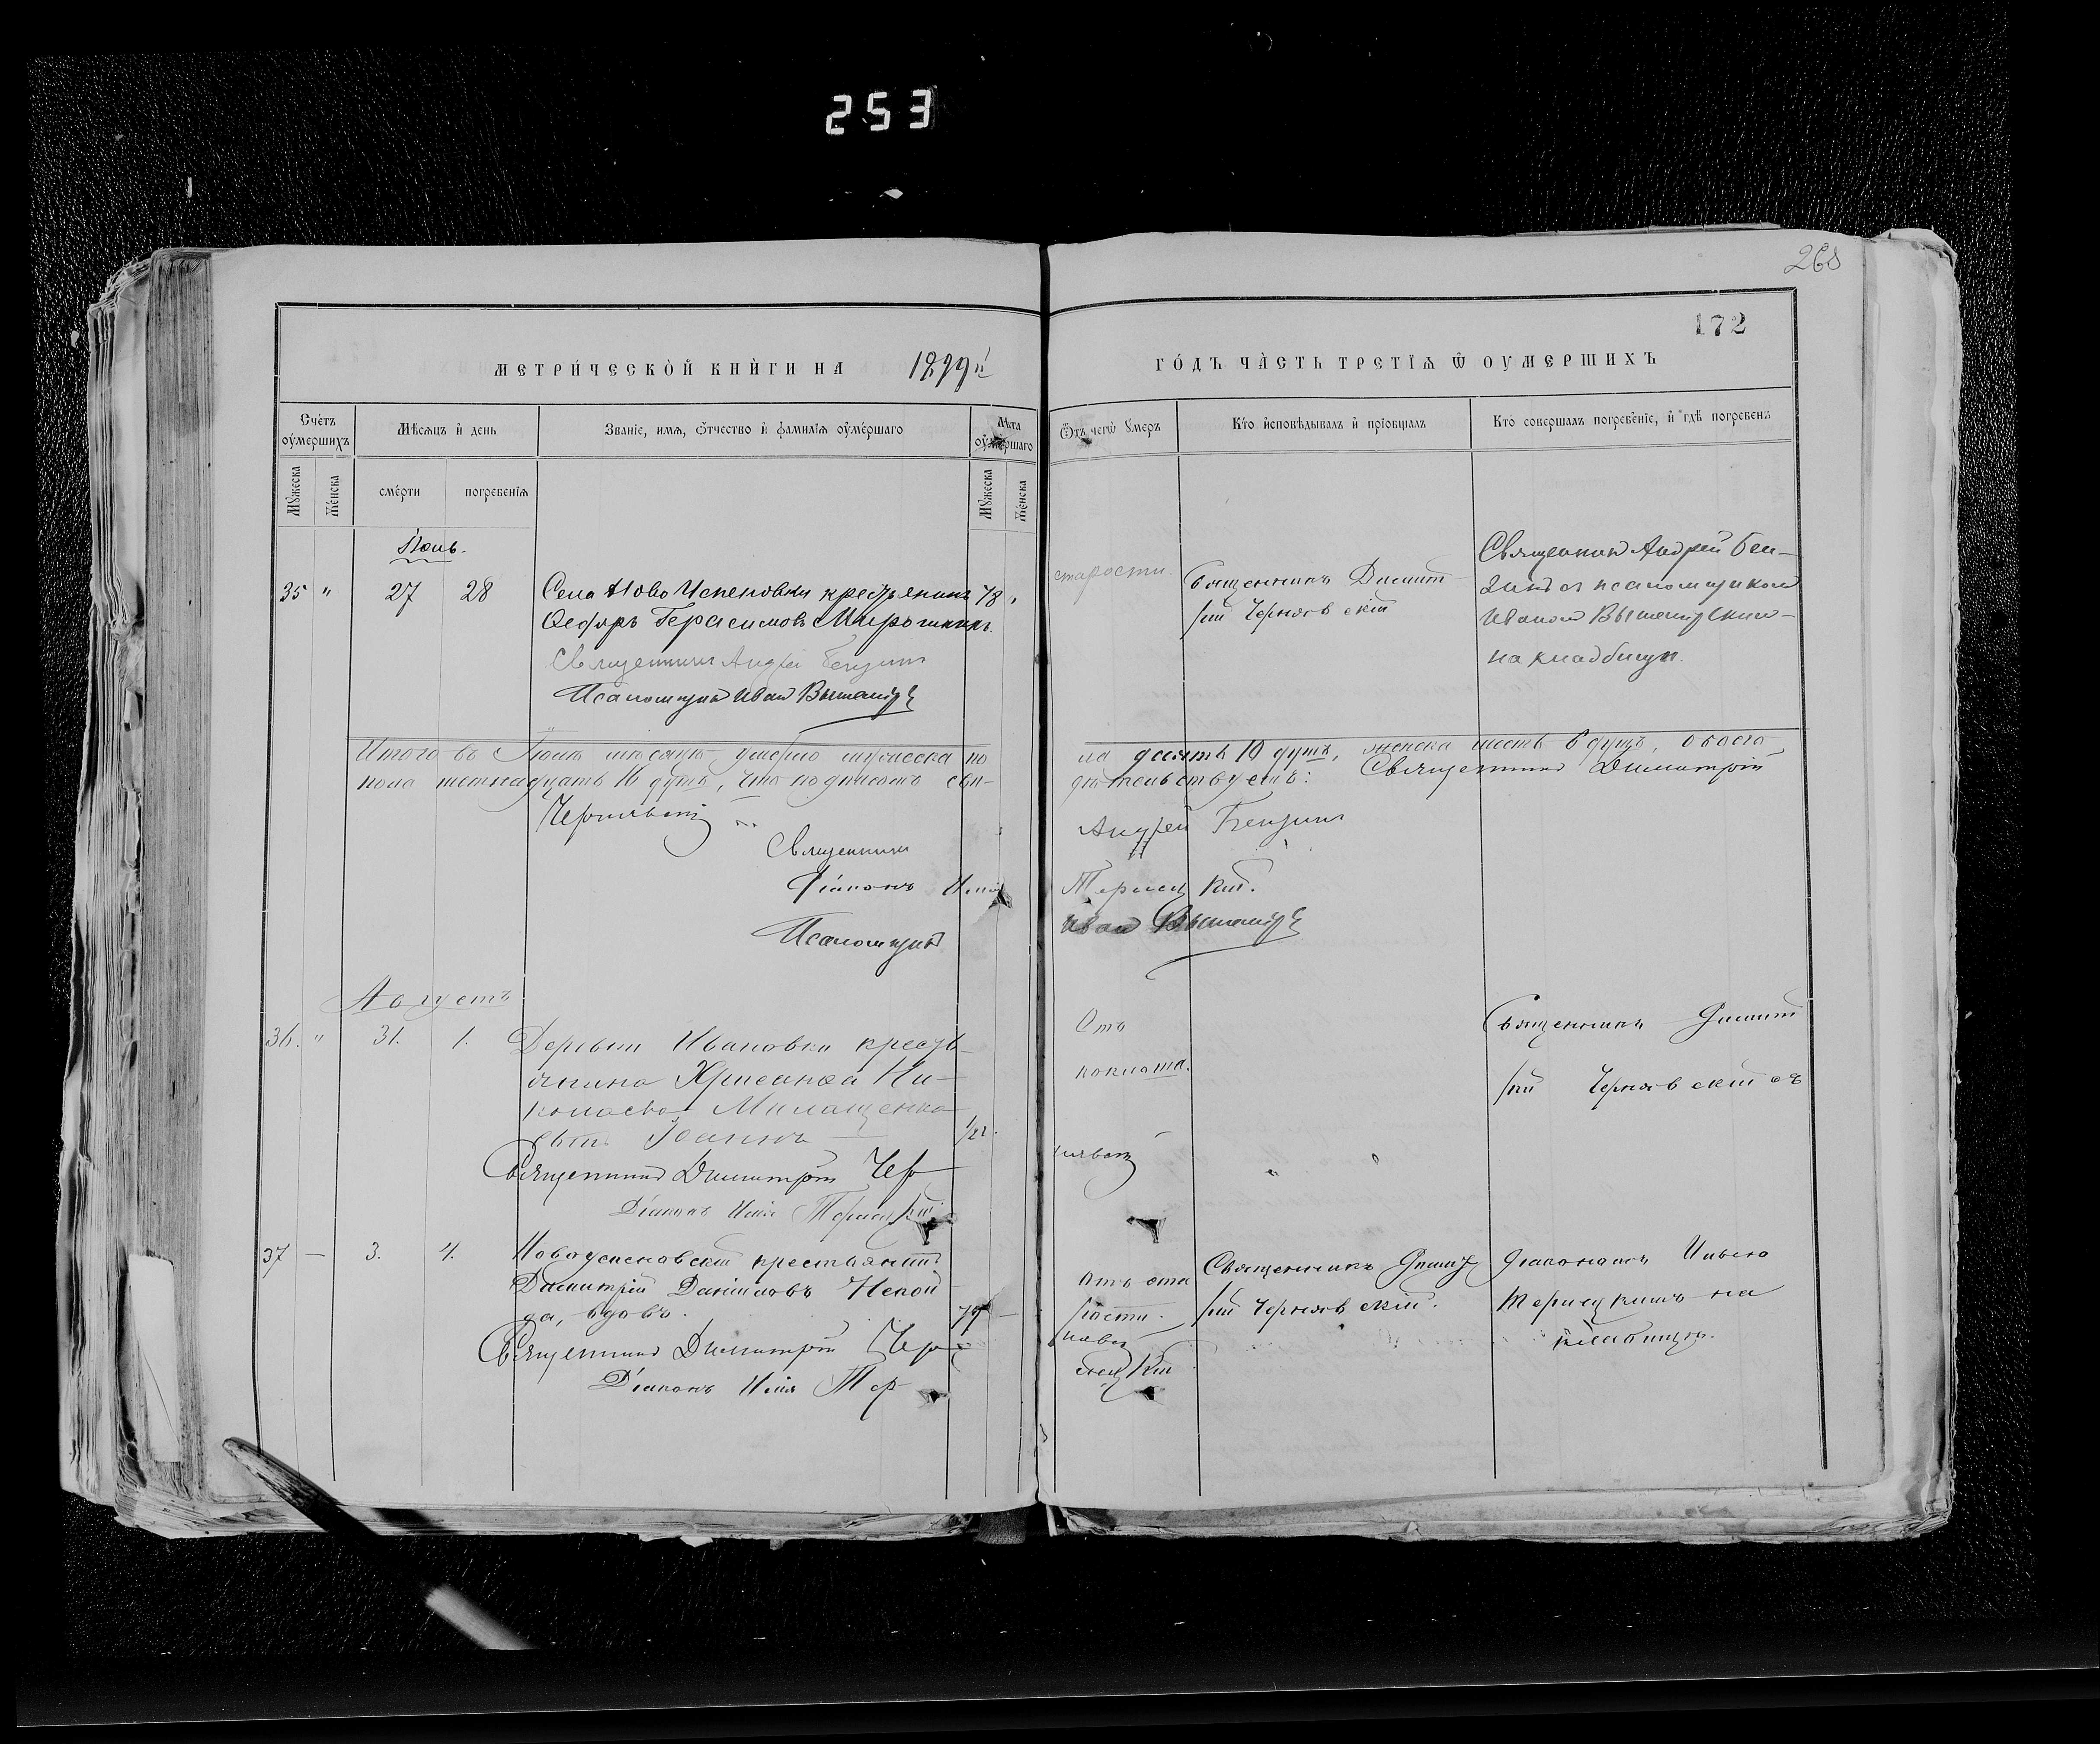 253
268
172
МЕТРИ́ЧЕСКОЙ КНИ́ГИ НА 1899й ГО́ДЪ ЧА́СТЬ ТРЕТІѦ Ѿ ОУМЕРШИХЪ
Сче́тъ оу҆ме́ршихъ
Мѣ́сѧцъ и҆ день
Зва́ніе, имѧ, ѻ҆́тчество и҆ фами́лїѧ оу҆ме́ршаго
Лѣта оу҆ме́ршаго
Ѿъ чегѡ̀ ᲂумеръ
Кто̀ и҆сповѣ́дывалъ и҆ прїобща́лъ
Кто̀ соверша́лъ погребе́ніе, и҆ гдѣ̀ погребе́нъ
Мꙋ́жеска
Же́нска
сме́рти
погребе́нїѧ
Мꙋ́жеска
Же́нска
Іюль.
35 " 27 28 Села Ново Успеновки крестьянинъ 78 "
Ѳедоръ Герасимовъ Мирошникъ.
Священникъ Андрей Бензинъ
Псаломщикъ Иван Вышемір
старости.
Священникъ Димит
рій Чернявскій
Священник Андрей Бен-
зинъ съ псаломщиком
Иваном Вышемірским
на кладбищѣ.
Итого въ Іюлѣ мѣсяцѣ умерло мужеска по
ла десять 10 душъ, женска шесть 6 душъ, обоего
пола шестнадцать 16 душъ, что подписомъ сви-
дѣтельствуемъ: Священникъ Димитрій
Чернявскій
Священникъ Андрей Бензинъ
Діаконъ Илія Терлецкій.
Псаломщикъ Иван Вышемір
Августъ
36. " 31. 1. Деревни Ивановки кресть
янина Хрисанѳа Ни-
колаева Милащенко
сынъ Іоаннъ 1/2г.
Священникъ Димитрій Чер
нявскій
Діаконъ Илія Терлецкій
Отъ
коклюша.
Священникъ Димит
рій Чернявскій съ
37 — 3. 4. Новоуспеновскій крестьянинъ
Димитрій Даніиловъ
да, вдовъ. 79 —
Священникъ Димитрій Чер
нявскій
Діаконъ Илія Тер
лецкій
Отъ ста
рости.
Священникъ Димит
рій Чернявскій.
діакономъ Иліею
Терлецкимъ на
кладбищѣ.